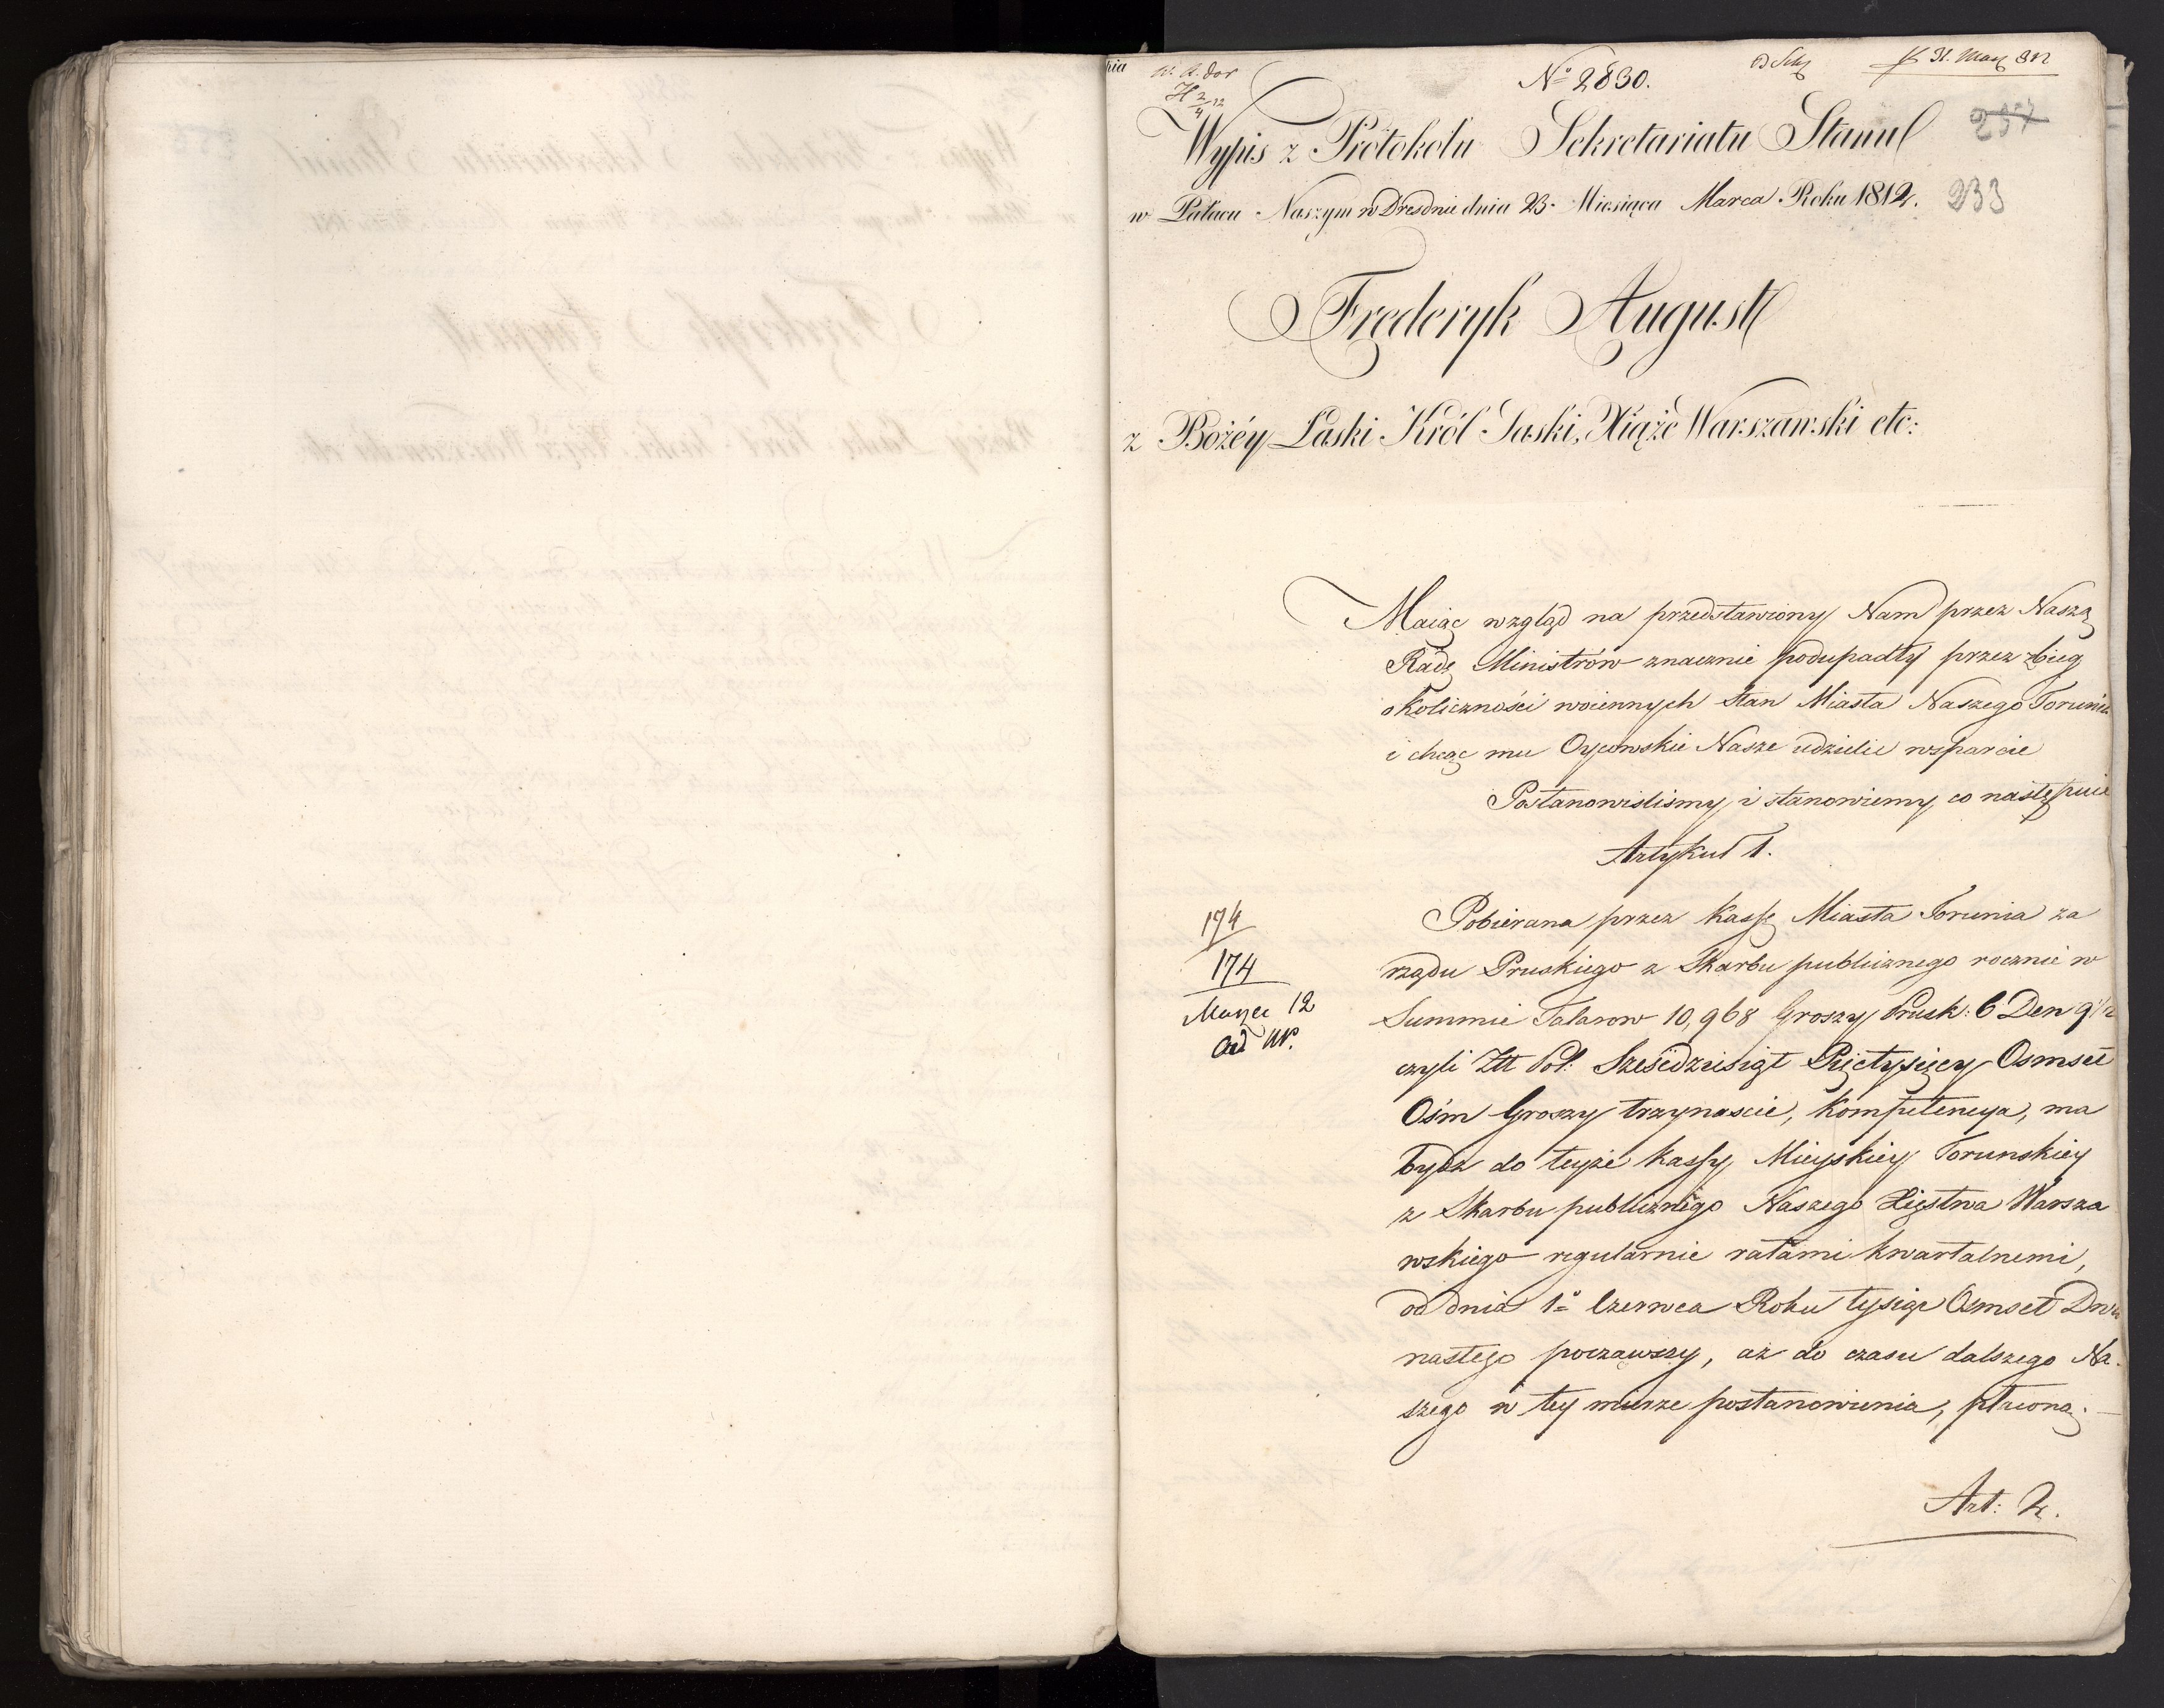 nia
No 2830.
Wypis z Protokołu Sekretariatu Stanu
237
w Pałacu Naszym w Dreśdnie dnia 23. Miesiąca Marca Roku 1812.
233
Frederyk August
z Bożéy Łaski Król Saski, Xiąże Warszawski etc:
Maiąc wzgląd na przedstawiony Nam przez Naszą
Radę Ministrów znacznie podupadły przez zbieg
okoliczności woiennych stan Miasta Naszego Torunia
i chcąc mu Oycowskie Nasze udzielić wsparcie
Postanowiliśmy i stanowiemy co następuie
Artykuł 1.
Pobierana przez Kassę Miasta Torunia za
rządu Pruskiego z Skarbu publicznego rocznie w
Summie Talarow 10,968 Groszy Prusk: 6 Den 9 1/2
czyli Złł Pol: Sześćdziesiąt Pięćtysięcy Osmset
Ośm Groszy trzynaście, kompetencya, ma
bydź do teyże kassy Mieyskiey Torunskiey
z Skarbu publicznégo Naszego Xięstwa Warsza
wskiego regularnie ratami kwartalnemi,
od dnia 1o Czerwca Roku tysiąc Osmset Dwu
nastego począwszy, aż do czasu dalszego Na-
szego w tey mierze postanowienia, płaconą.
174
174
Marca 12
ad
Art: 2.